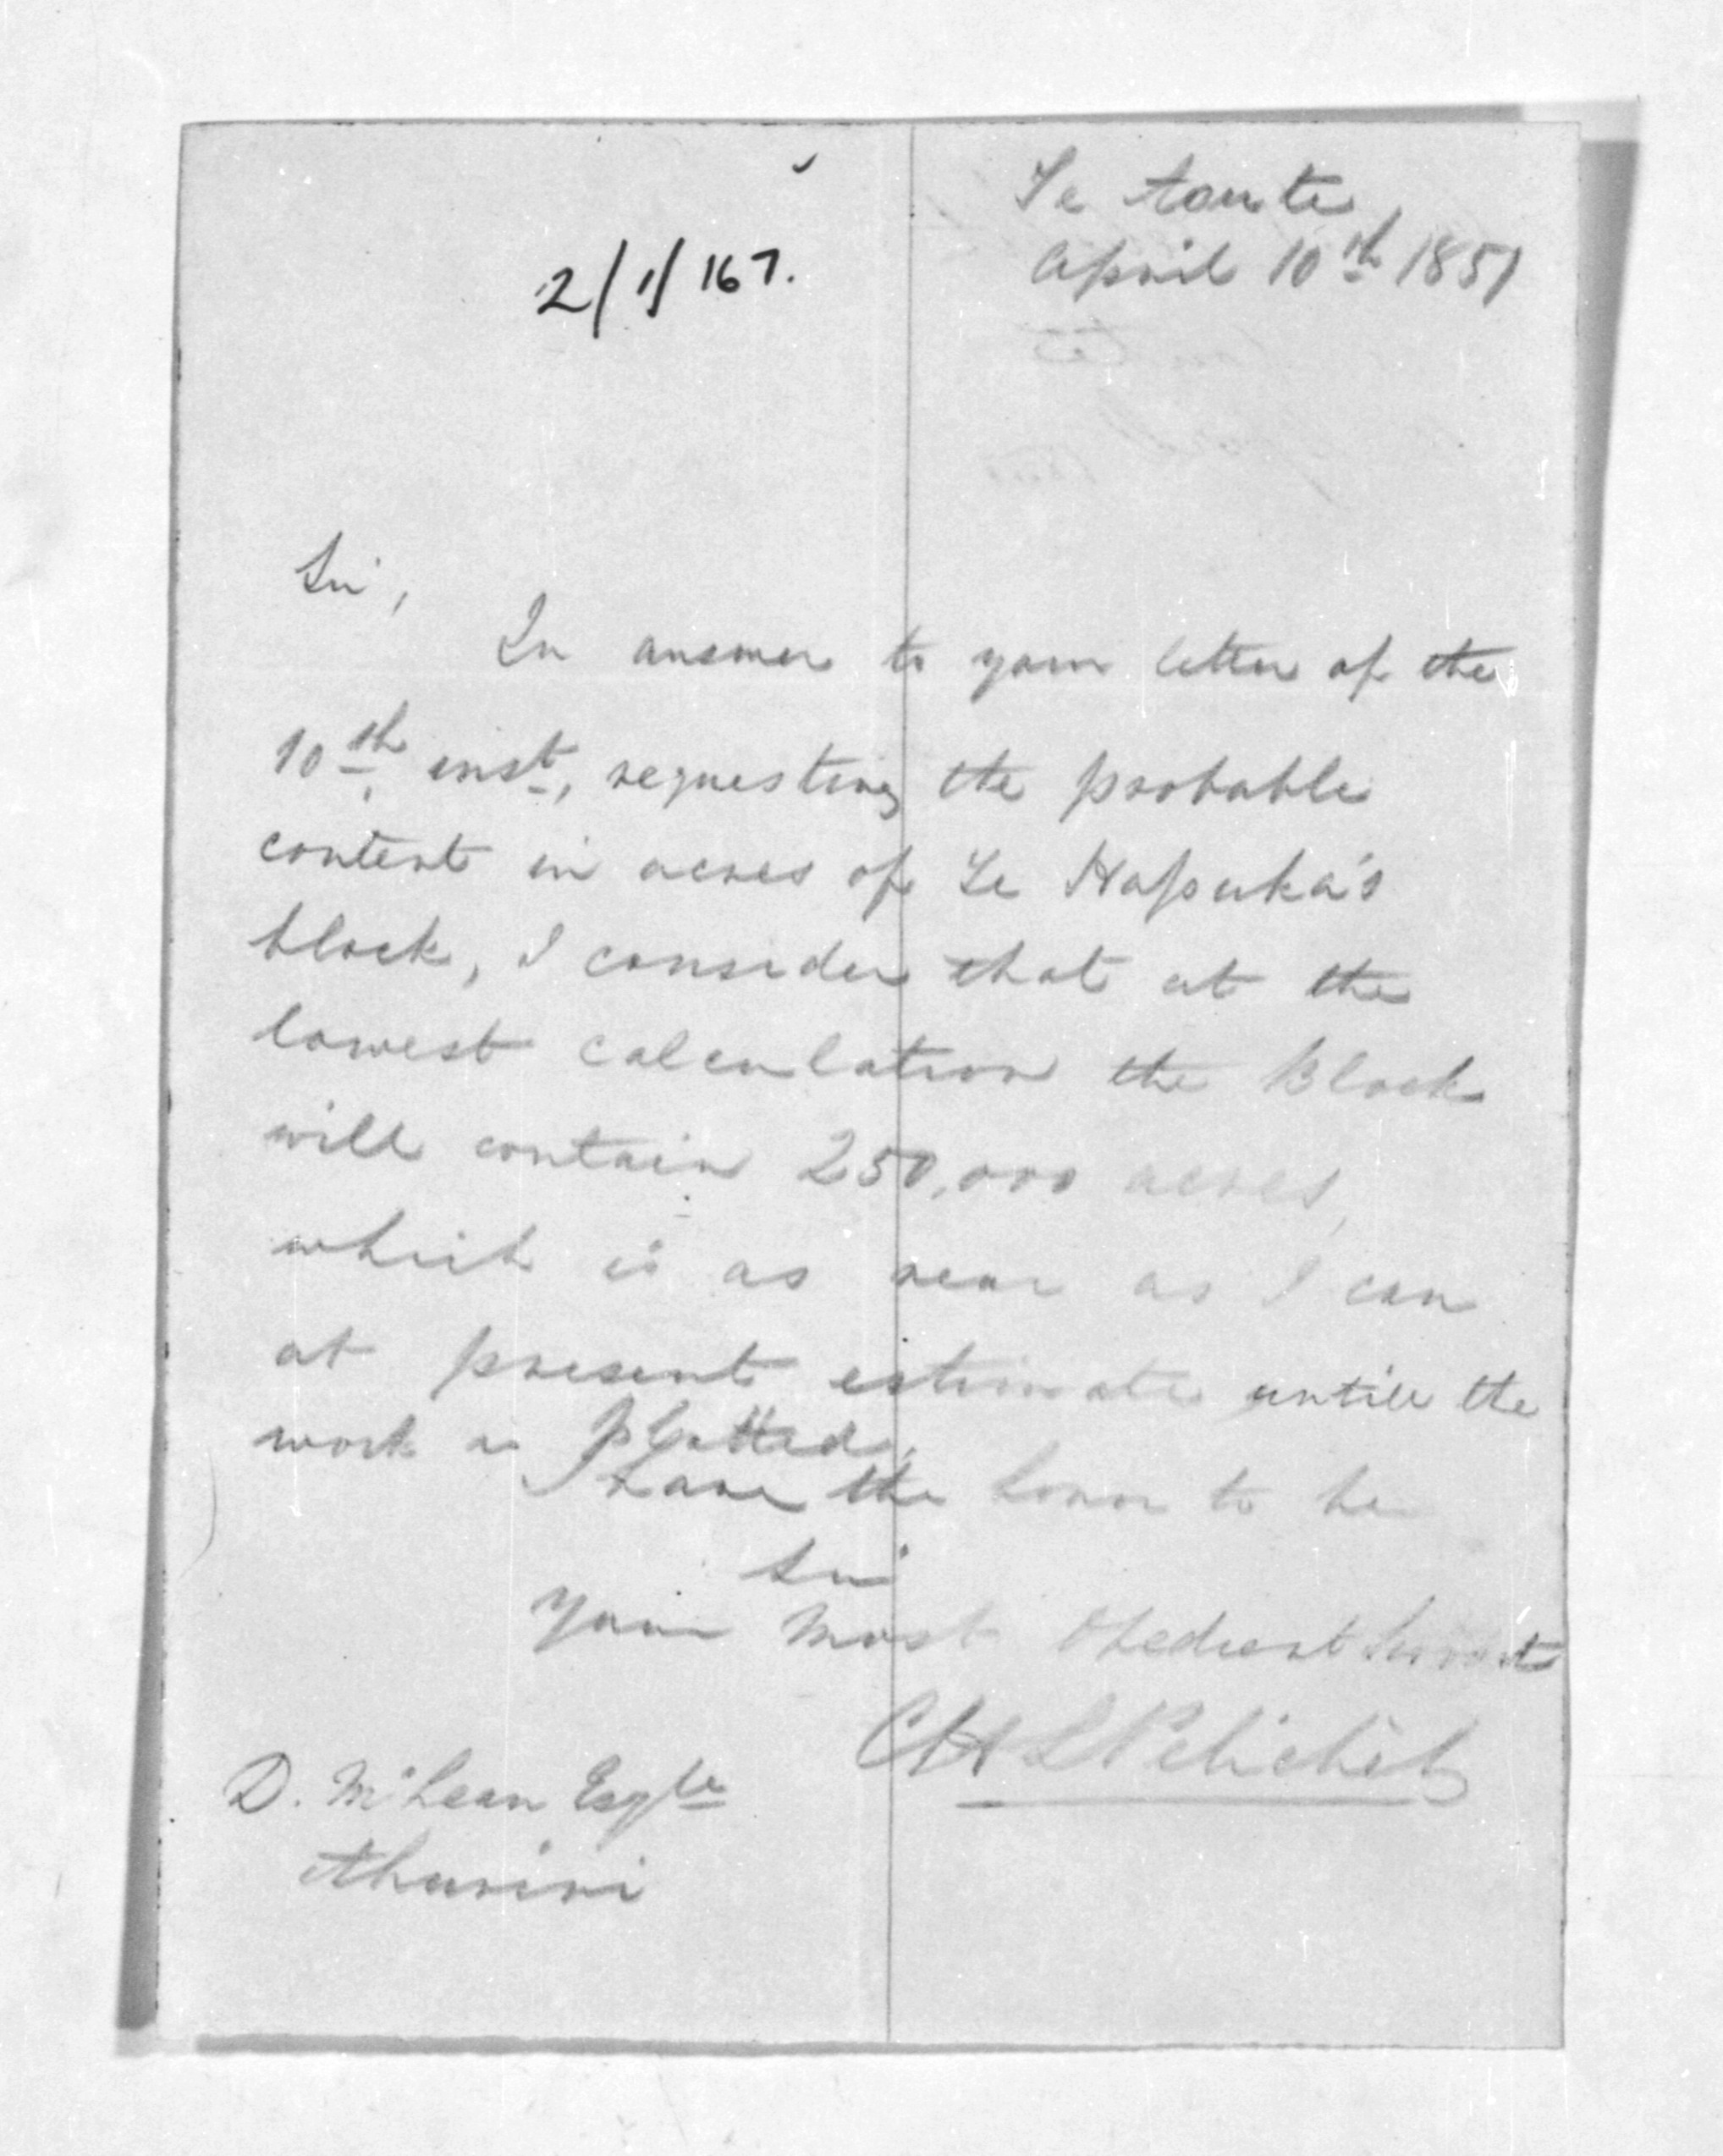 Te Aute
April 10th 1851
2/1/167.
Sir,
In answer to your letter of the
10th inst, requesting the probable
content in acres of Te Hapuka's
block, I consider that at the
lowest calculation the Block
will contain 250,000 acres,
which is as near as I can
at present estimate untill the
work is plotted.
I have the honor to be
Sir
Your Most Obedient Servant
C H L Pelichet
D. McLean Esqre
Ahuriri